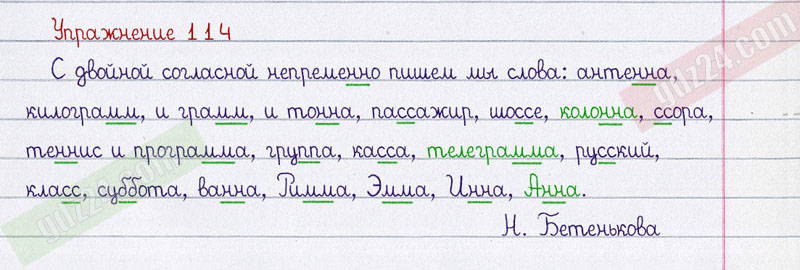 Упражнение 114
С двойной согласной непременно пишем мы слова: антенна,
килограмм, и грамм, и тонна, пассажир, шоссе, колонна, ссора,
теннис и программа, группа, касса, телеграмма, русский,
класс, суббота, ванна, Римма, Эмма, Инна, Анна.
Н. Бетенькова
gdz24.com
gdz24.com